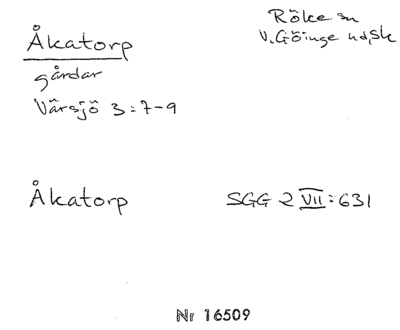 Åkatorp
Röke sn
V. Göinge hd, Sk
gårdar
Värsjö 3:7-9
Åkatorp
SGG 2 VII:631
Nr 16509